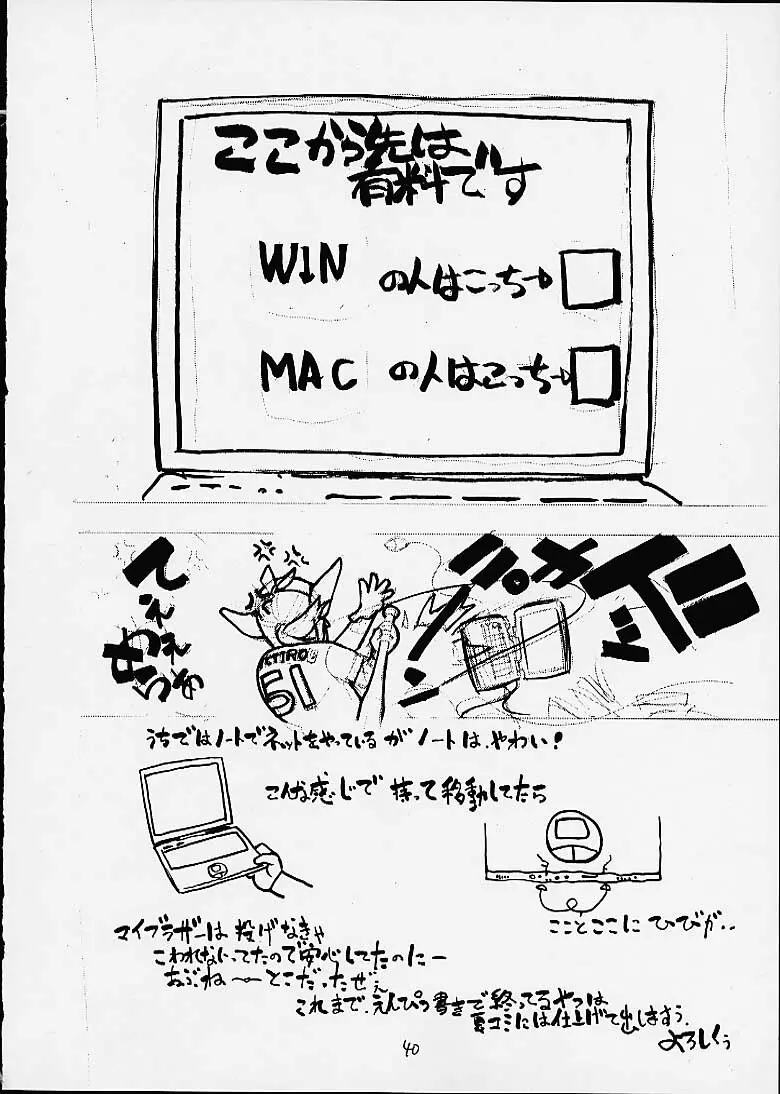 ここから先は
有料です
WIN の人はこっち→
MAC の人はこっち→
てえ
めえ
51
うちではノートでネットをやっているがノートは、やわい!
こんな感じで持って移動してたら
こことここにひびが‥
マイブラザーは投げなきゃ
こわれないってたので安心してたのにー
あぶね〜とこだったぜぇ
これまで、えんぴつ書きで終ってるやつは
夏コミには仕上げて出しますぅ。
よろしくぅ
40